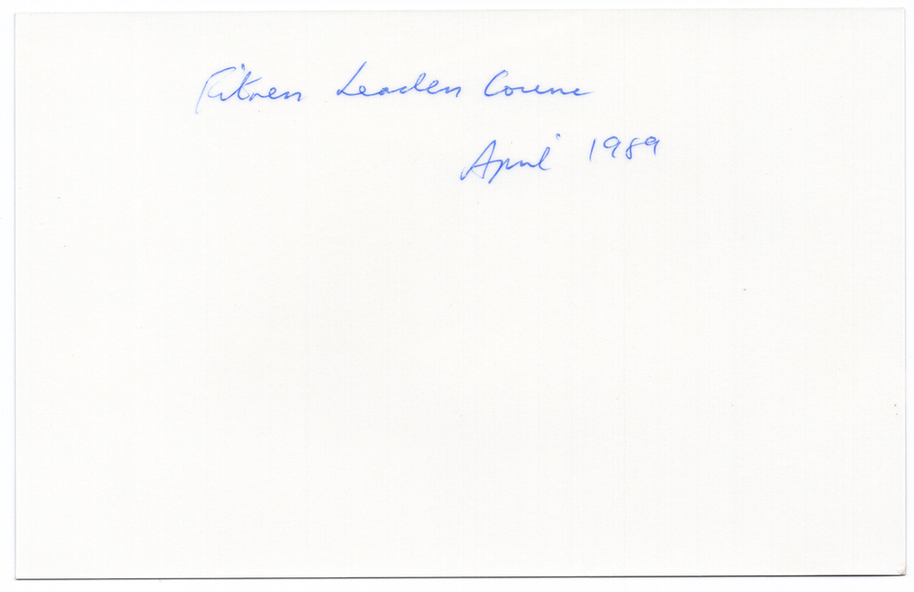 Fitness Leaders Course
April 1989